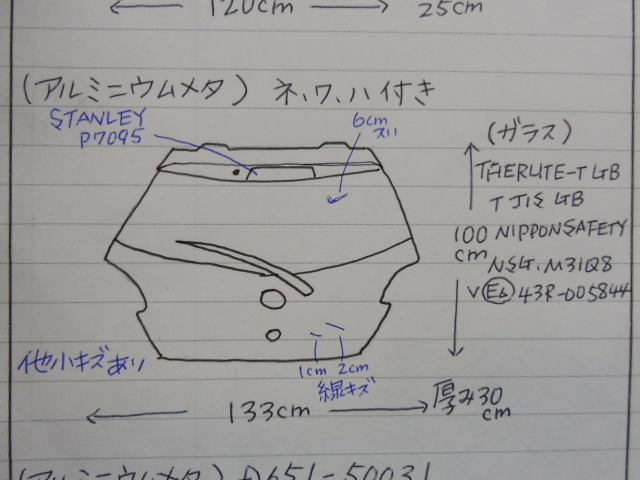 120cm 25cm
(アルミニウムメタ) ネ、ワ、ハ付き
STANLEY
P7095
6cm
スリ
(ガラス)
THERLITE-T GB
T JIS GB
100 cm
NIPPONSAFETY
NSG. M31Q8
V E6 43R-005844
他小キズあり
1cm 2cm
線キズ
133cm
厚み30
cm
(アルミニウムメタ) D651-50031